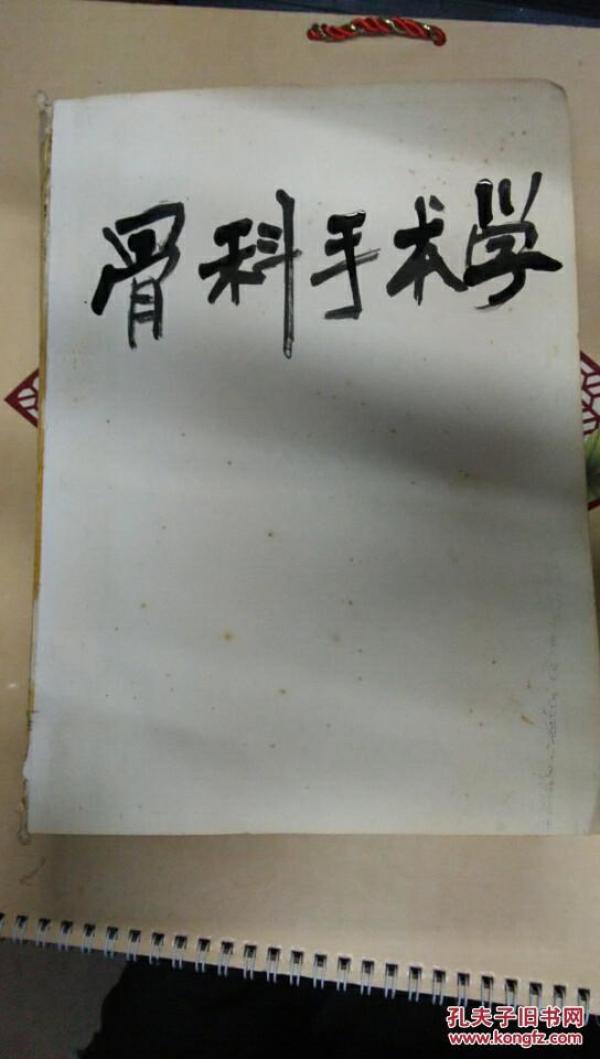 骨科手术学
孔夫子旧书网
www.kongfz.com